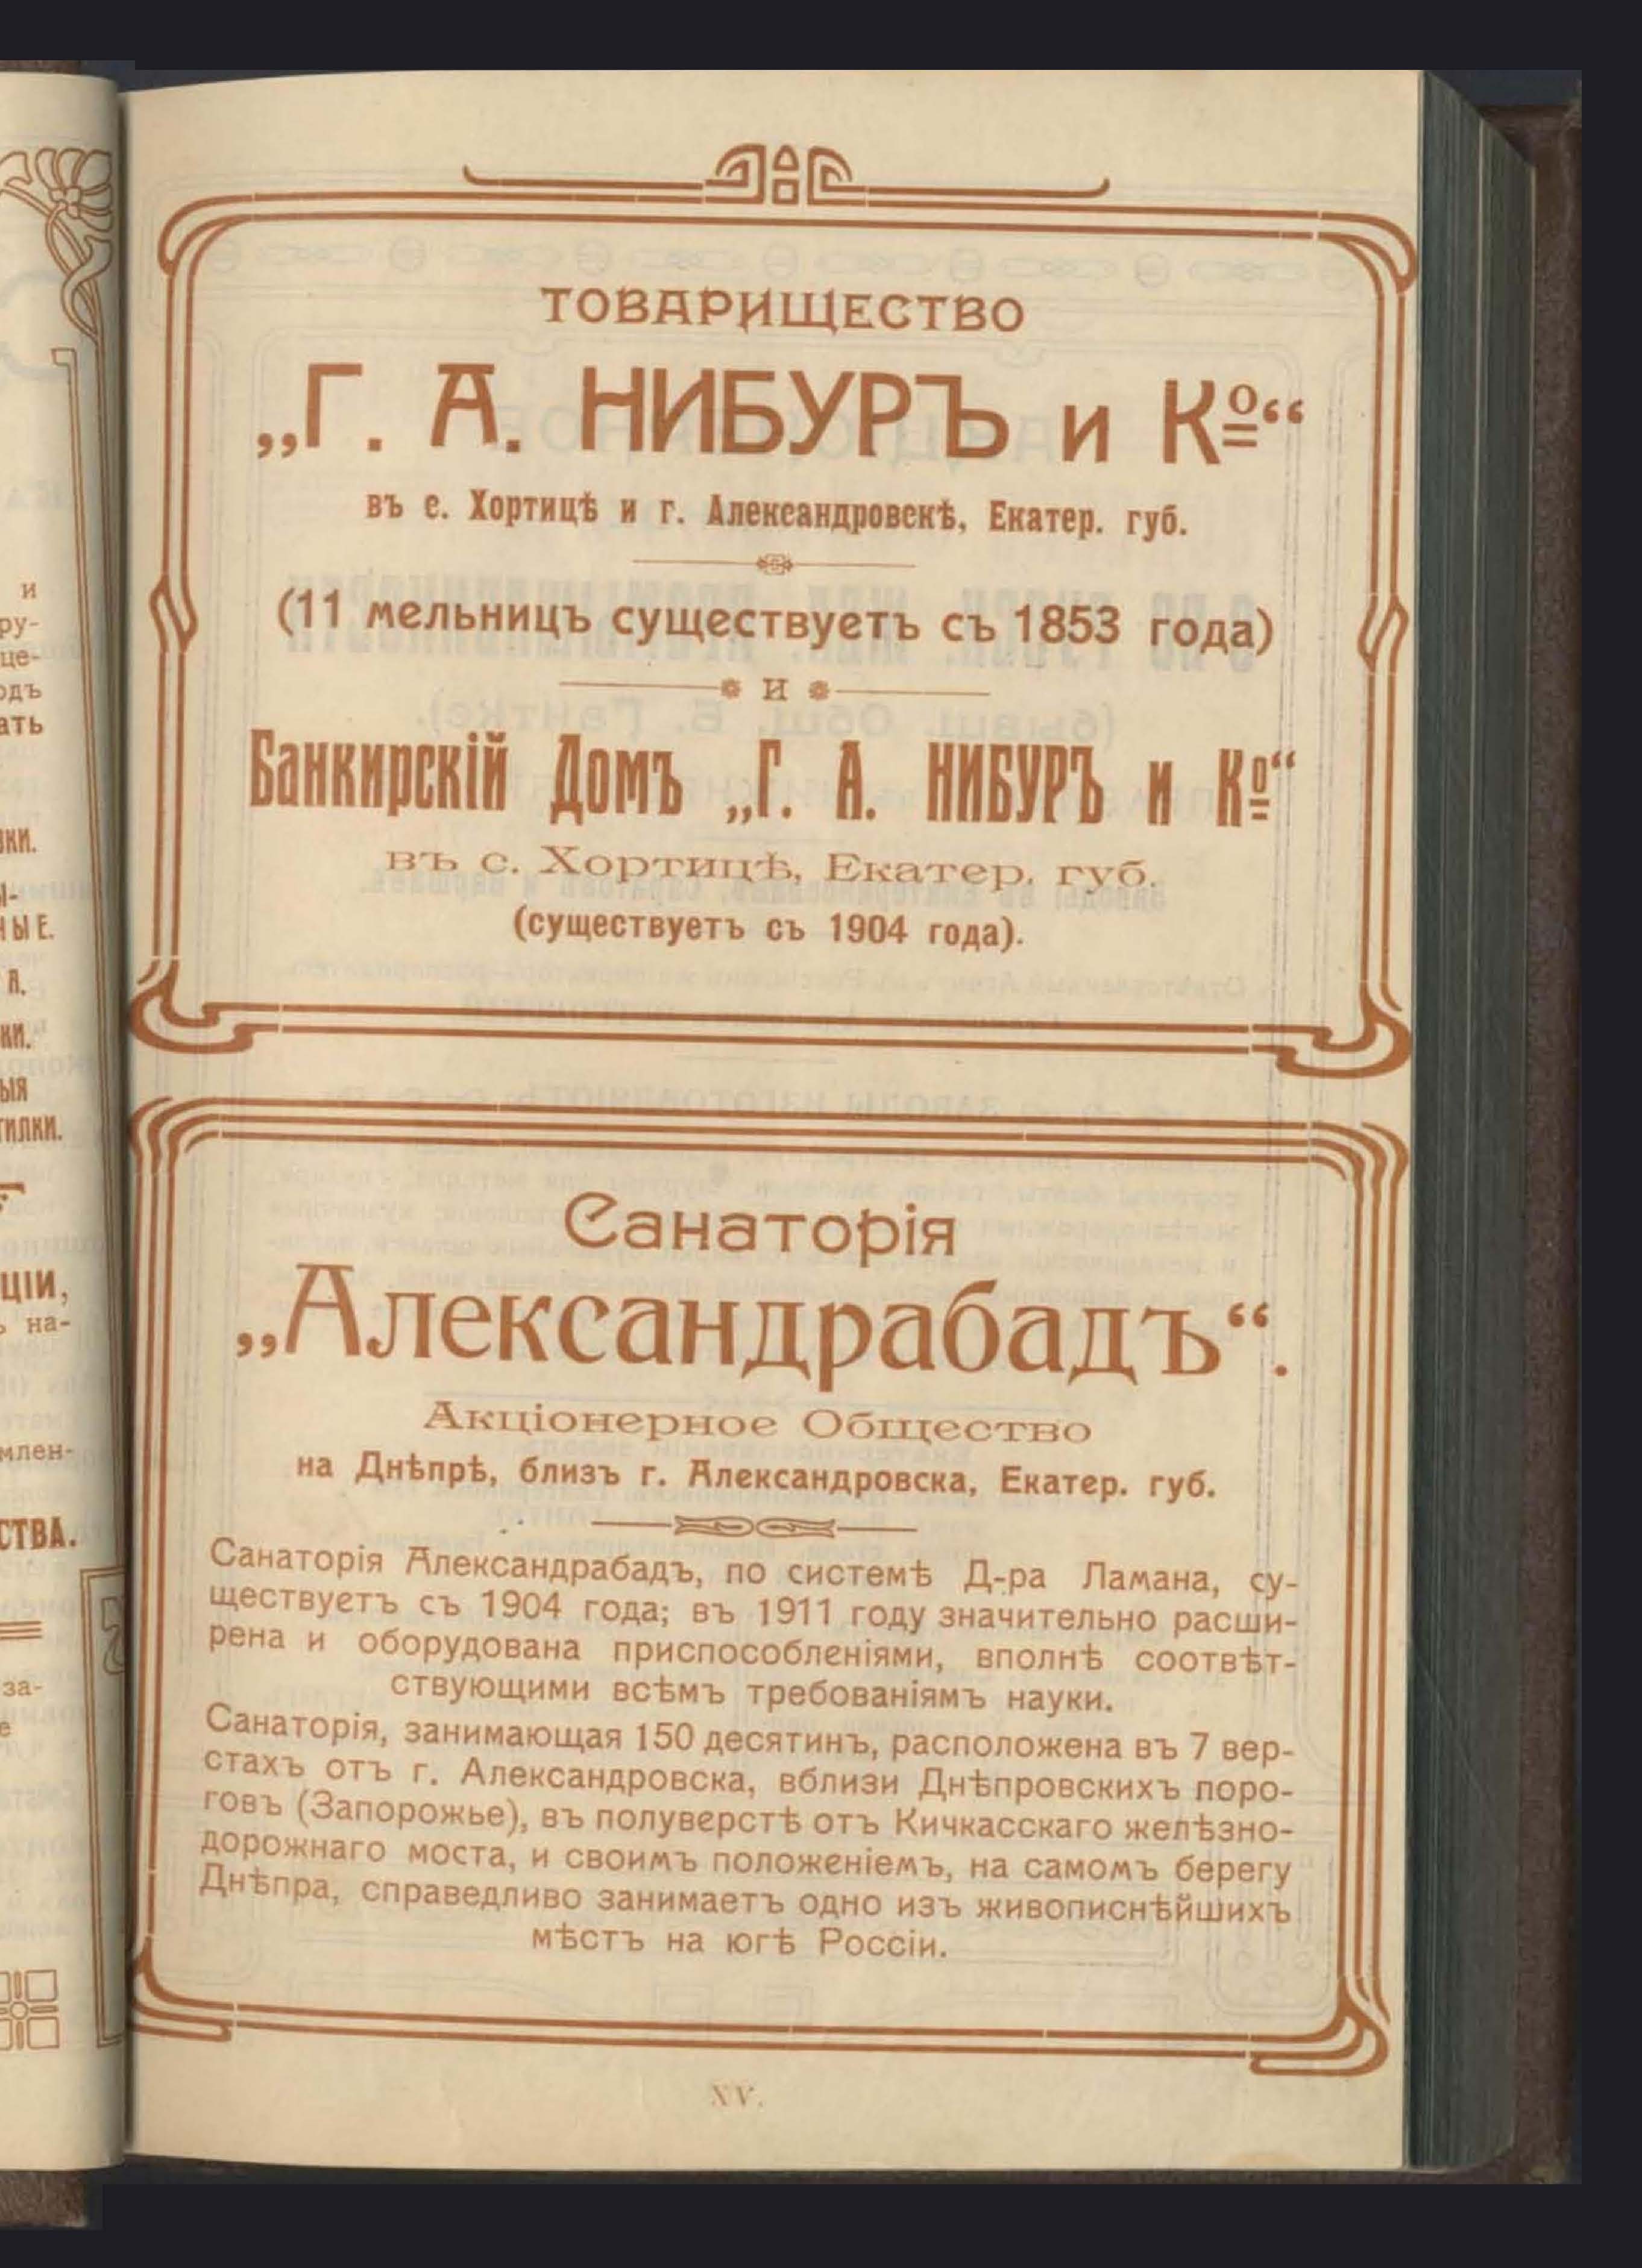 ТОВАРИЩЕСТВО
„Г. А. НИБУРЪ и Кº“
въ с. Хортицѣ и г. Александровскѣ, Екатер. губ.
(11 мельницъ существуетъ съ 1853 года)
и
Банкирскій Домъ „Г. А. НИБУРЪ и Кº“
въ с. Хортицѣ, Екатер. губ.
(существуетъ съ 1904 года).
Санаторія
„Александрабадъ“.
Акціонерное Общество
на Днѣпрѣ, близъ г. Александровска, Екатер. губ.
Санаторія Александрабадъ, по системѣ Д-ра Ламана, су-
ществуетъ съ 1904 года; въ 1911 году значительно расши-
рена и оборудована приспособленіями, вполнѣ соотвѣт-
ствующими всѣмъ требованіямъ науки.
Санаторія, занимающая 150 десятинъ, расположена въ 7 вер-
стахъ отъ г. Александровска, вблизи Днѣпровскихъ поро-
говъ (Запорожье), въ полуверстѣ отъ Кичкасскаго желѣзно-
дорожнаго моста, и своимъ положеніемъ, на самомъ берегу
Днѣпра, справедливо занимаетъ одно изъ живописнѣйшихъ
мѣстъ на югѣ Россіи.
XV.